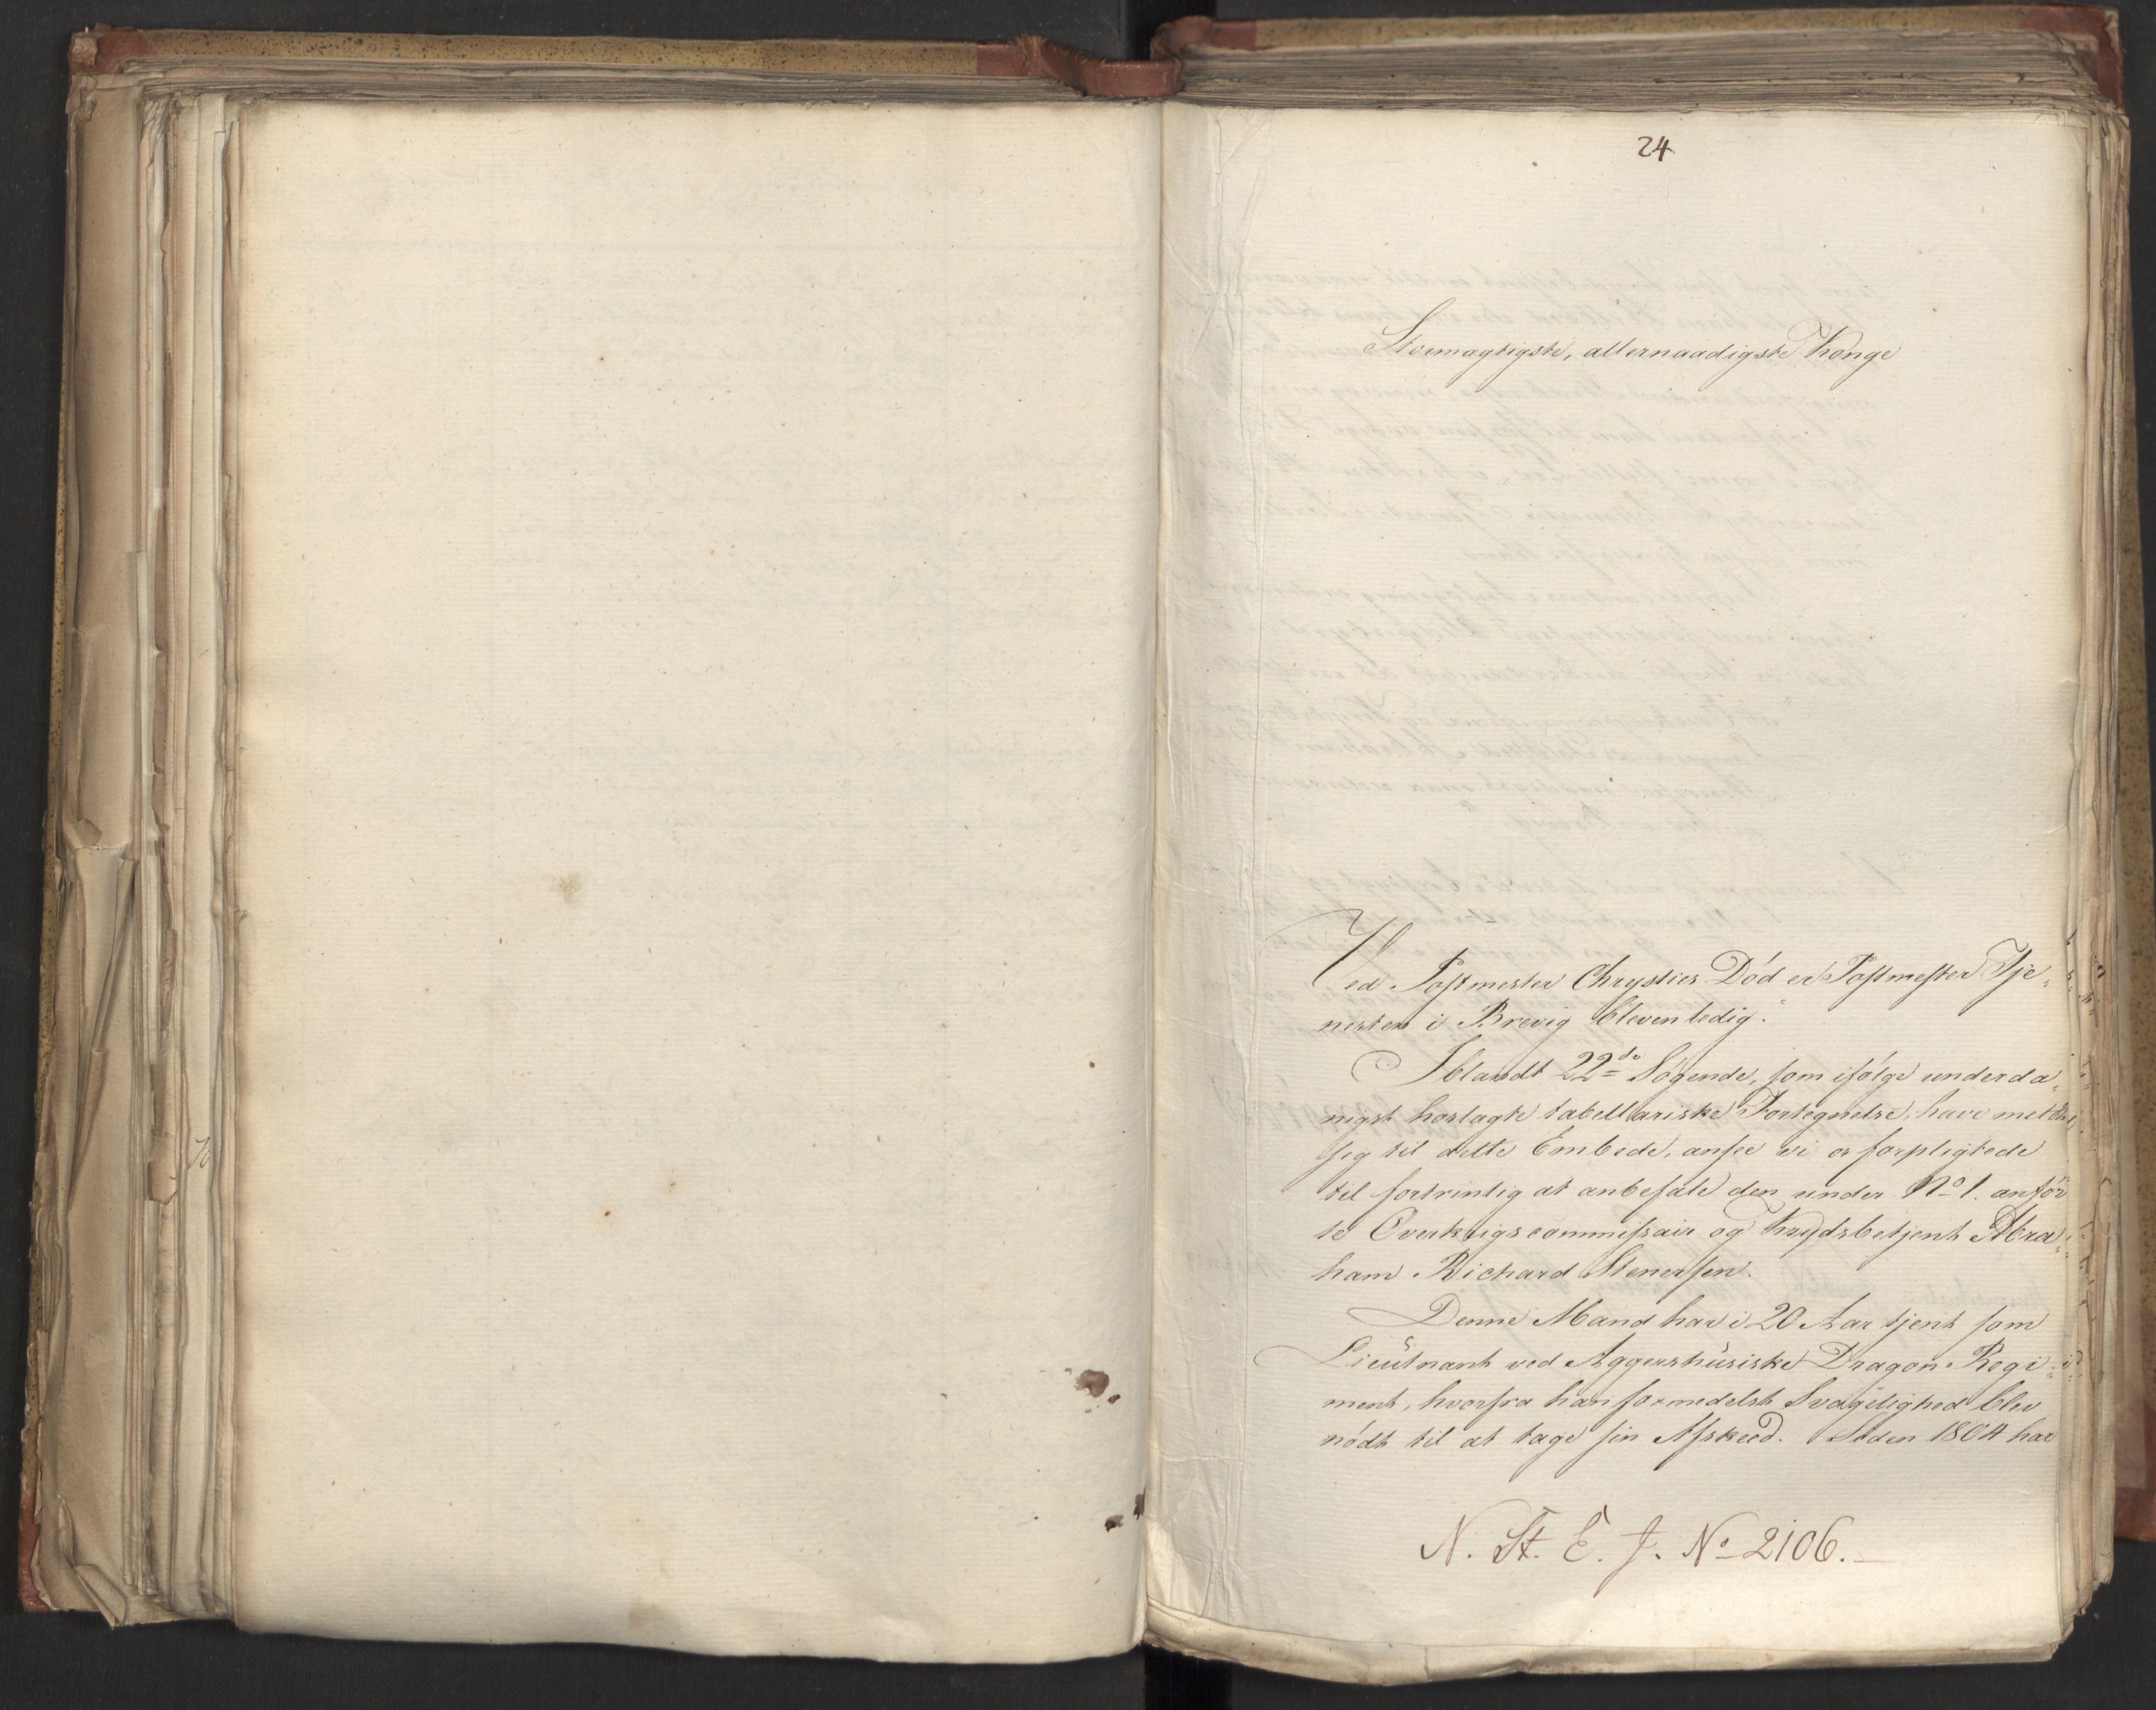 24
Stormægtigste, allernaadigste Konge
Ved Postmester Chrysties Død er Postmester Tje-
nesten i Brevig bleven ledig.
Iblandt 22de Søgende, som ifølge underda-
nigst hoslagte tabellariske Fortegnelse, have meldt
sig til dette Embede, ansee vi os forpligtede
til fortrinlig at anbefale den under No 1. anför
te Overkrigscommissair og Krydsbetjent Abra-
ham Richard Stenersen.
Denne Mand har i 20 Aar tjent som
Lieutnant ved Aggershusiske Dragon-Regi-
ment, hvorfra han formedelst Svagelighed blev
nødt til at tage sin Afskeed. Siden 1804 har
N. St. E. J. No 2106.